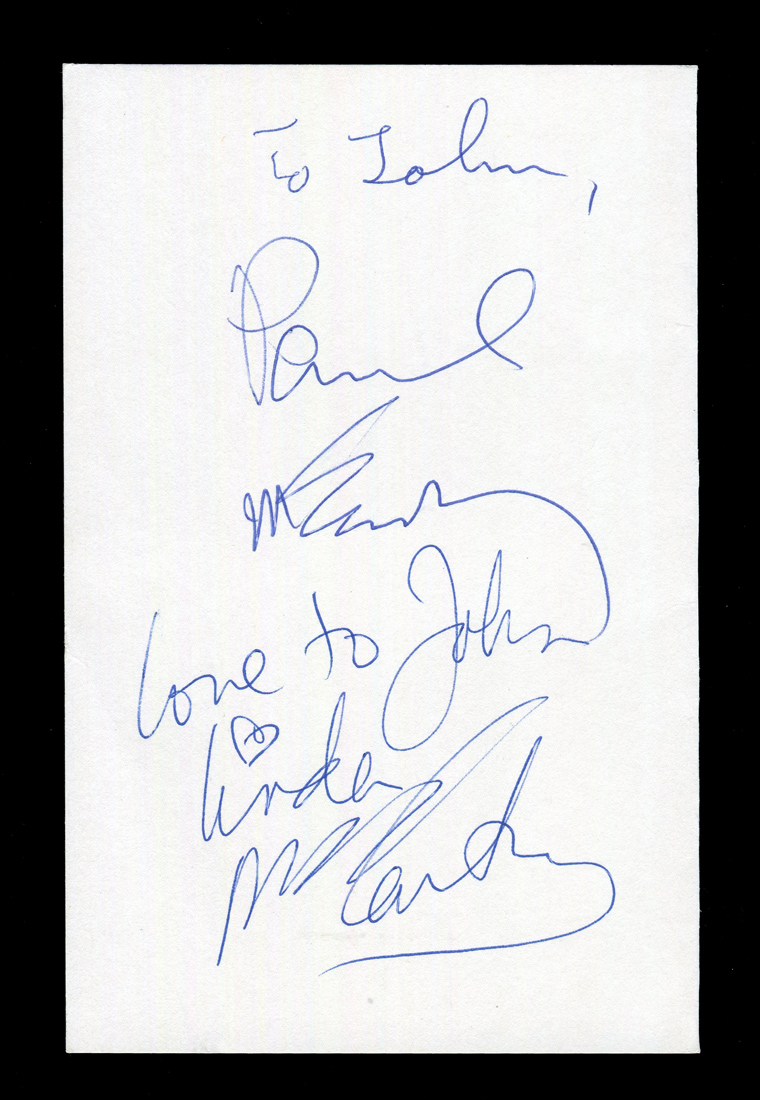 To John,
Paul
McCartney
love to John
linda
McCartney